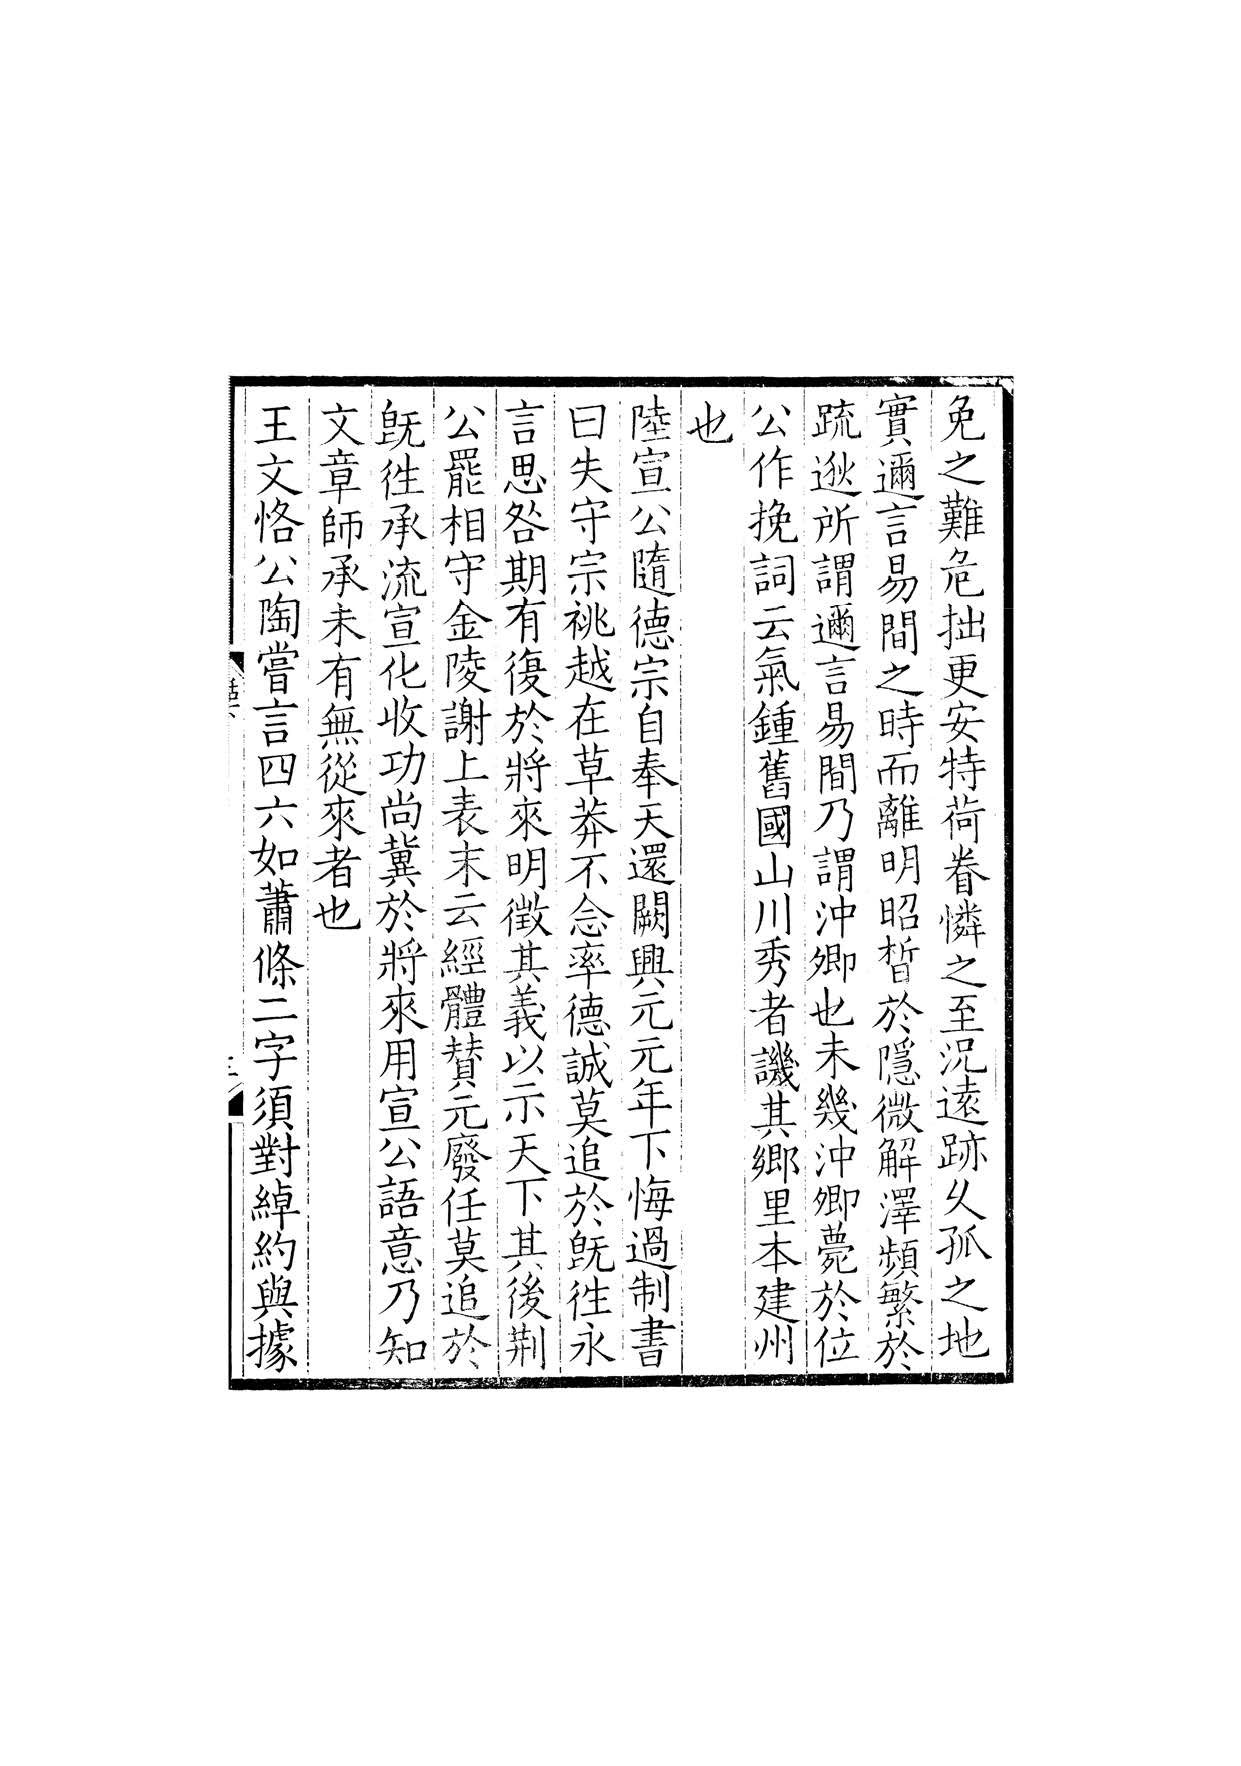 免之難危拙更安特荷眷憐之至況遠跡乆孤之地
實邇言易間之時而離明昭晳於隱微解澤頻繁於
疏逖所謂邇言易間乃謂沖卿也未幾沖卿薨於位
公作挽詞云氣鍾舊國山川秀者譏其鄉里本建州
也
陸宣公隨德宗自奉天還闕興元元年下悔過制書
曰失守宗祧越在草莽不念率德誠莫追於旣徃永
言思咎期有復於將來明徵其義以示天下其後荆
公罷相守金陵謝上表末云經體賛元廢任莫追於
旣徃承流宣化收功尚冀於將來用宣公語意乃知
文章師承未有無從來者也
王文恪公陶嘗言四六如蕭條二字須對綽約與據